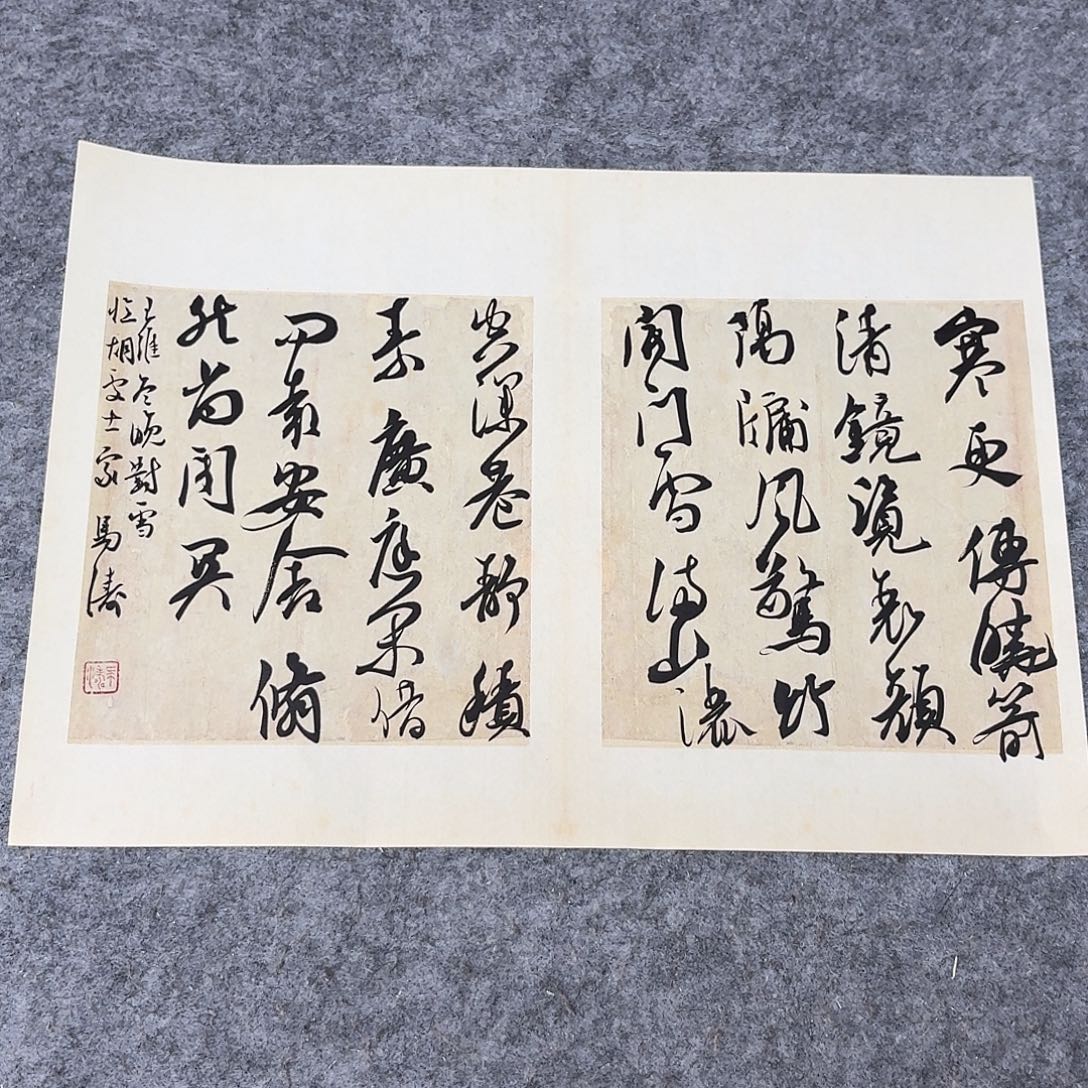 寒更傳曉箭
清鏡覽衰顏
隔牖風驚竹
開門雪滿山灑
空深巷靜積
素廣庭閑借
問袁安舍翛
然尚閉關
王維冬晚對雪
憶胡處士家 馬濤